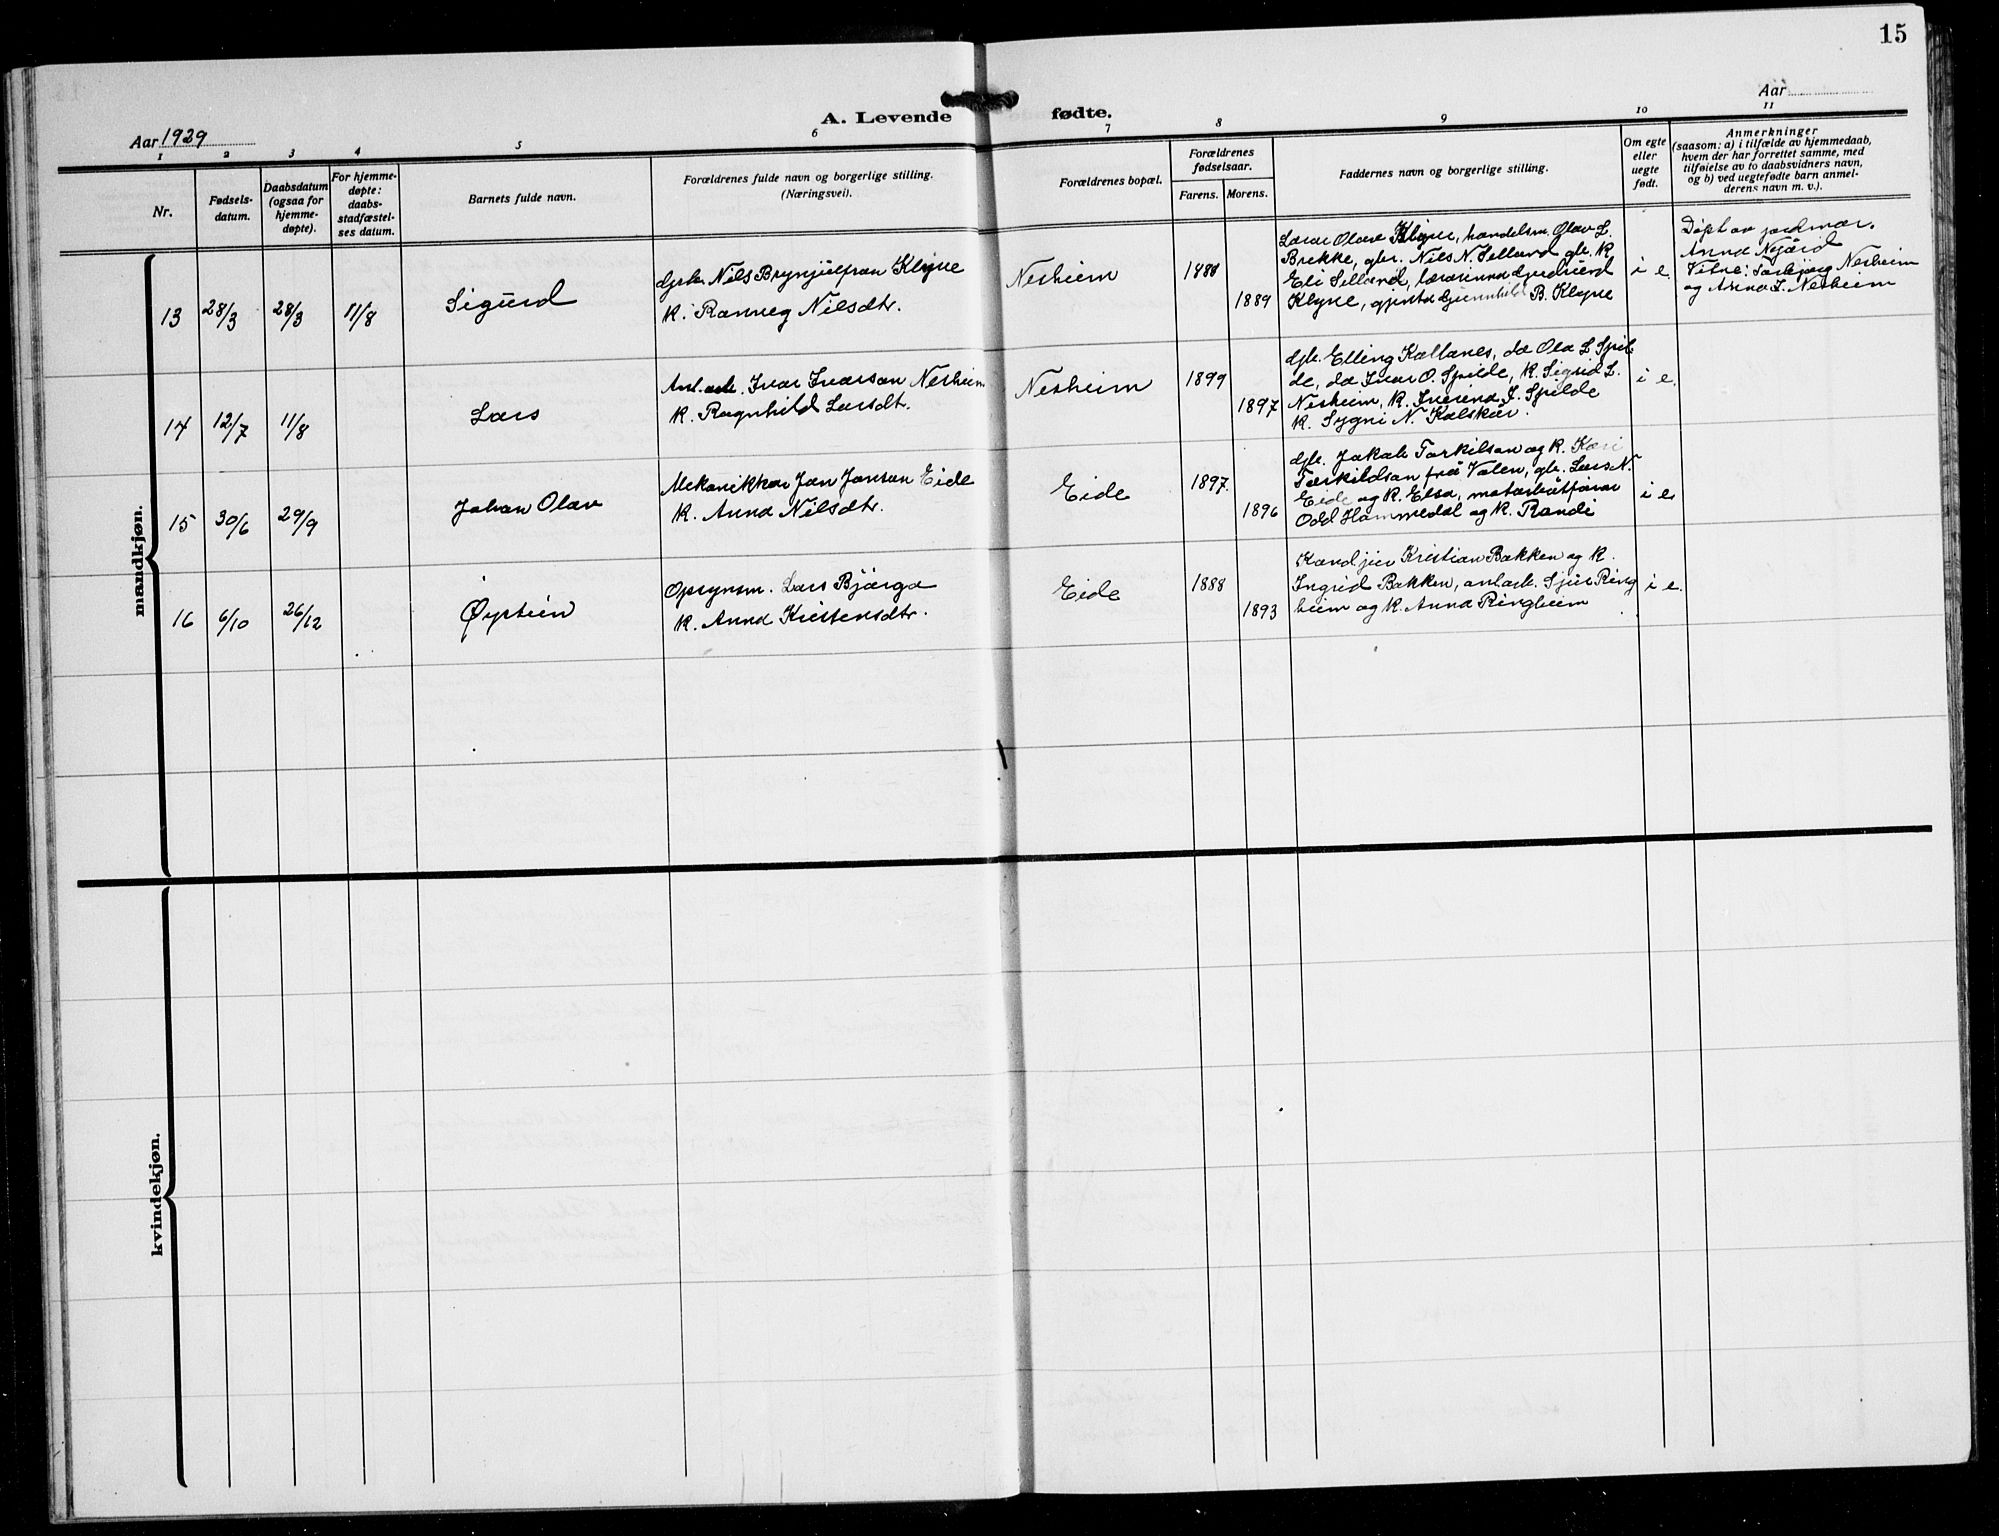 15
Aar 1929
A. Levende fødte.
Aar
1 2 3 4 5 6 7 8 9 10 11
Nr.
Fødsels-
datum.
Daabsdatum
(ogsaa for
hjemme-
døpte).
For hjemme-
døpte:
daabs-
stadfæstel-
ses datum.
Barnets fulde navn.
Forældrenes fulde navn og borgerlige stilling.
(Næringsvei).
Forældrenes bopæl.
Forældrenes
fødselsaar.
Farens. Morens.
Faddernes navn og borgerlige stilling.
Om egte
eller
uegte
født.
Anmerkninger
(saasom: a) i tilfælde av hjemmedaab,
hvem der har forrettet samme, med
tilføielse av to daabsvidners navn,
og b) ved uegtefødte barn anmel-
derens navn m. v.).
mandkjøn.
13 28/3 28/3 11/8 Sigurd
gbr. Nils Brynjulfson Klyve
K. Ranveg Nilsdtr.
Nesheim
1888
1889
Lærar Olav Klyve, handelsm. Olav L.
Brekke, gbr. Nils N. Selland gbr. K
Eli Selland, lærarinna Gjertrud
Klyve, gjenta Gunnhild B. Klyve
i e.
Døpt av jordmor
Anna Nygård
Vitne: Torbjørg Nesheim
og Anna I. Nesheim
14 12/7 11/8 Lars
Anl.arb. Ivar Ivarson Nesheim
K. Ragnhild Larsdt.
Nesheim
1899
1897
gbr. Elling Kollanes, do Ola L. Spil-
de, do Ivar O. Spilde, K. Sigrid L.
Nesheim, K. J. Spilde
K. Sygni N. Kolskår.
i e.
15 30/6 29/9 Johan Olav
Mekanikkar Jon Jonson Eide
K. Anna Nilsdtr.
Eide
1897.
1896
gbr. Jakob Torkilson og K. Kari
Torkildson frå Valen, gbr. Lars N.
Eide og K. Elsa, motorbåtførar
Odd Hammedal og K. Randi
i e
16 6/10 26/12 Øystein
Opsynsm. Lars Bjørgo
K. Anna Kristensdtr.
Eide
1888
1893
Kand jur Kristian Bakken og K.
Ingrid Bakken, anlarb. Sjur Ring
heim og K. Anna Ringheim
i e.
kvindekjøn.